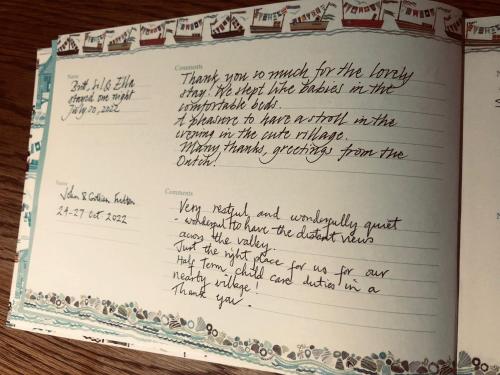 Name
Britt, Lil & Ella
stayed one night
July 20, 2022
Comments
Thank you so much for the lovely
stay! We slept like babies in the
comfortable beds.
A pleasure to have a stroll in the
evening in the cute village.
Many thanks, greetings from the
Dutch!
Name
John & Gillian
24-27 Oct 2022
Comments
Very restful and wonderfully quiet
- wonderful to have the distant views
across the valley.
Just the right place for us for our
Half Term child care duties in a
nearby village!
Thank you.